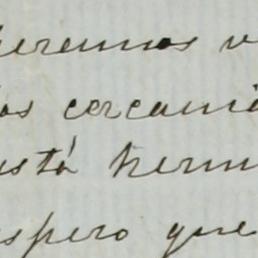 eremos v
los cercani
está herm
espero que